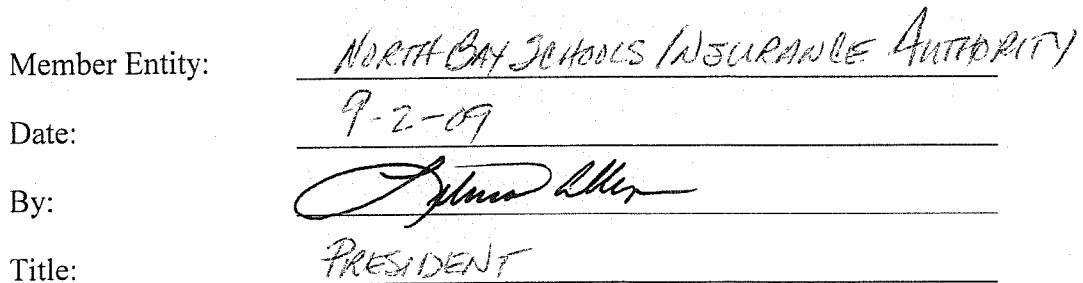 Member Entity: NORTH BAY SCHOOLS INSURANCE AUTHORITY
Date: 9-2-09
By:
Title: PRESIDENT